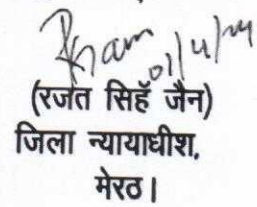 01/4/24
(रजत सिहॅ जैन)
जिला न्यायाधीश,
मेरठ।